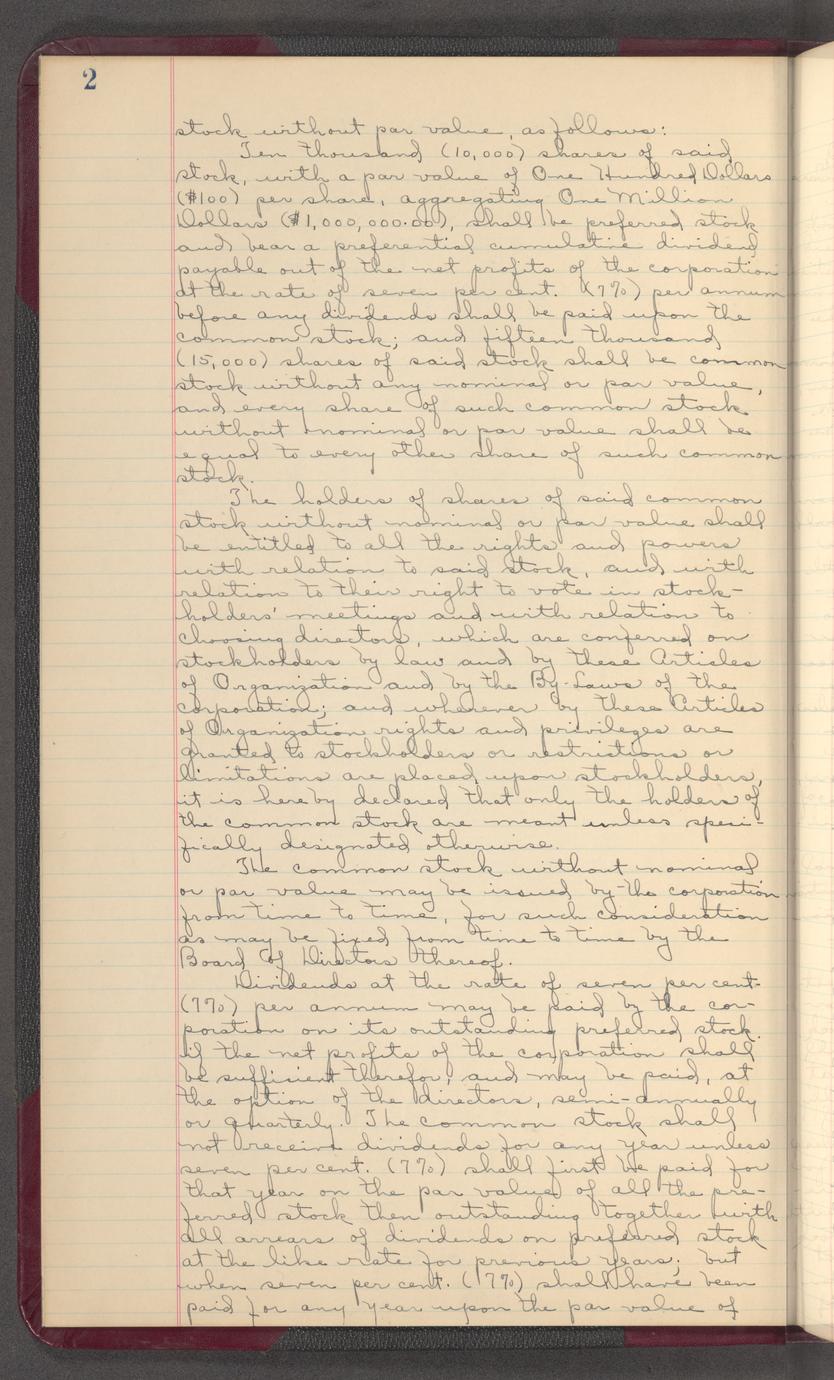 2
stock without par value, as follows:
Ten thousand (10,000) shares of said
stock, with a par value of One Hundred Dollars
($100) per share, aggregating One Million
Dollars ($1,000,000.00), shall be preferred stock
and bear a preferential cumulative dividend
payable out of the net profits of the corporation
at the rate of seven per cent. (7%) per annum
before any dividends shall be paid upon the
common stock; and fifteen thousand
(15,000) shares of said stock shall be common
stock without any nominal or par value,
and every share of such common stock
without nominal or par value shall be
equal to every other share of such common
stock.
The holders of shares of said common
stock without nominal or par value shall
be entitled to all the rights and powers
with relation to said stock, and with
relation to their right to vote in stock-
holders' meetings and with relation to
choosing directors, which are conferred on
stockholders by law and by these Articles
of Organization and by the By-Laws of the
corporation; and whenever by these Articles
of Organization rights and privileges are
granted to stockholders or restrictions or
limitations are placed upon stockholders,
it is hereby declared that only the holders of
the common stock are meant unless speci-
fically designated otherwise.
The common stock without nominal
or par value may be issued by the corporation
from time to time, for such consideration
as may be fixed from time to time by the
Board of Directors thereof.
Dividends at the rate of seven per cent.
(7%) per annum may be paid by the cor-
poration on its outstanding preferred stock
if the net profits of the corporation shall
be sufficient therefor, and may be paid, at
the option of the directors, semi-annually
or quarterly. The common stock shall
not receive dividends for any year unless
seven per cent. (7%) shall first be paid for
that year on the par value of all the pre-
ferred stock then outstanding together with
all arrears of dividends on preferred stock
at the like rate for previous years; but
when seven per cent. (7%) shall have been
paid for any year upon the par value of